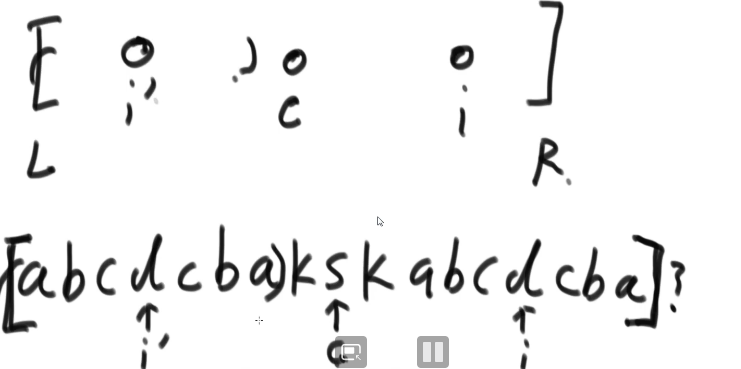 [ ( i' ) c i ]
L R
[abcdcba)kskabcdcba]?
i' c i